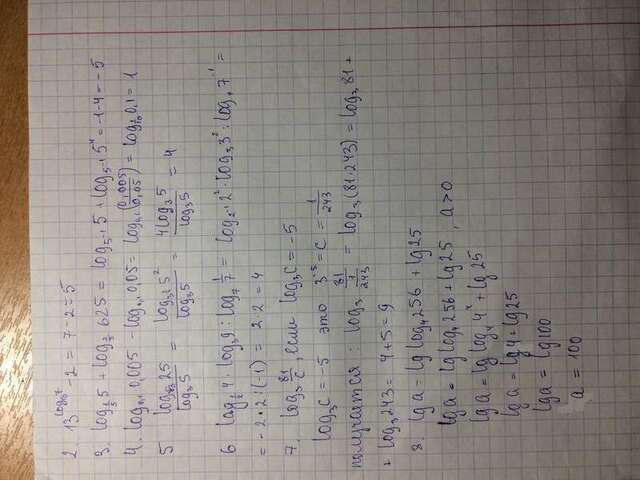 2. 13^log₁₃7 - 2 = 7 - 2 = 5
3. log_{1/5} 5 + log_{1/5} 625 = log_{5⁻¹} 5 + log_{5⁻¹} 5⁴ = -1-4 = -5
4. log₀,₁ 0,005 - log₀,₁ 0,05 = log₀,₁ (0,005/0,05) = 0,1 = 1
5 25 / log₃5 = 5² / log₃5 = 4log₃5 / log₃5 = 4
6 log_{1/2} 4 · log₃9 : log₇ 1/7 = log_{2⁻¹} 2² · log₃3² : log₇ 7⁻¹ =
= -2·2:(-1) = 2·2 = 4
7. log₃ 81/c, если log₃c = -5
log₃c = -5 это 3⁻⁵ = c = 1/243
получается: log₃ 81/(1/243) = log₃(81·243) = log₃81 +
+ log₃243 = 4+5 = 9
8. lg a = lg log₄256 + lg25
lg a = lg log₄256 + lg25, a>0
lg a = lg log₄4⁴ + lg 25
lg a = lg4 lg25
lg a = lg100
a = 100